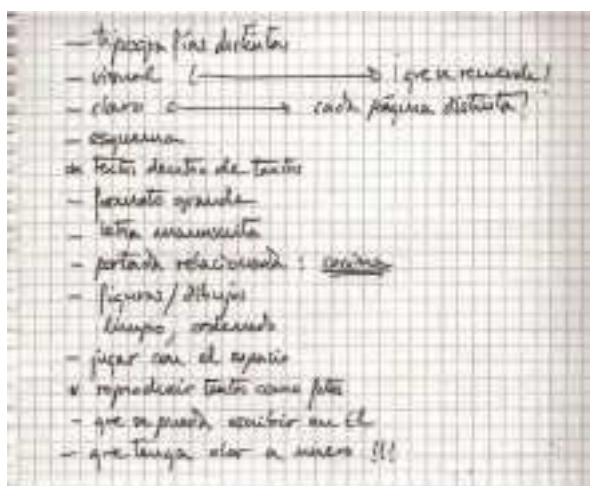 - tipografías distintas
- visual → ¡que se recuerde!
- claro → cada página distinta?
- esquema
* textos dentro de textos
- formato grande
- letra manuscrita
- portada relacionada:
- figuras/dibujos
limpio, ordenado
- jugar con el espacio
* reproducir textos como fotos
- que se pueda escribir en él
- que tenga olor a nuevo !!!